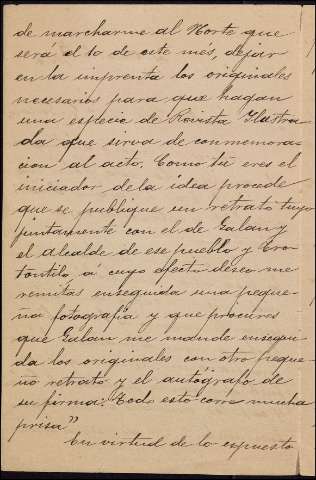 de marcharme al Norte que
será el 10 de este mes, dejar
en la imprenta los originales
necesarios para que hagan
una especie de Revista Ilustra
da que sirva de conmemora-
cion al acto. Como tú eres el
iniciador de la idea procede
que se publique un retrato tuyo
juntamente con el de Galan y
el alcalde de ese pueblo y Cro-
tontilo a cuyo efecto deseo me
remitas enseguida una peque
ña fotografía y que procures
que Galan me mande ensegui
da los originales con otro peque
ño retrato y el autógrafo de
su firma: Todo esto corre mucha
prisa"
En virtud de lo espuesto